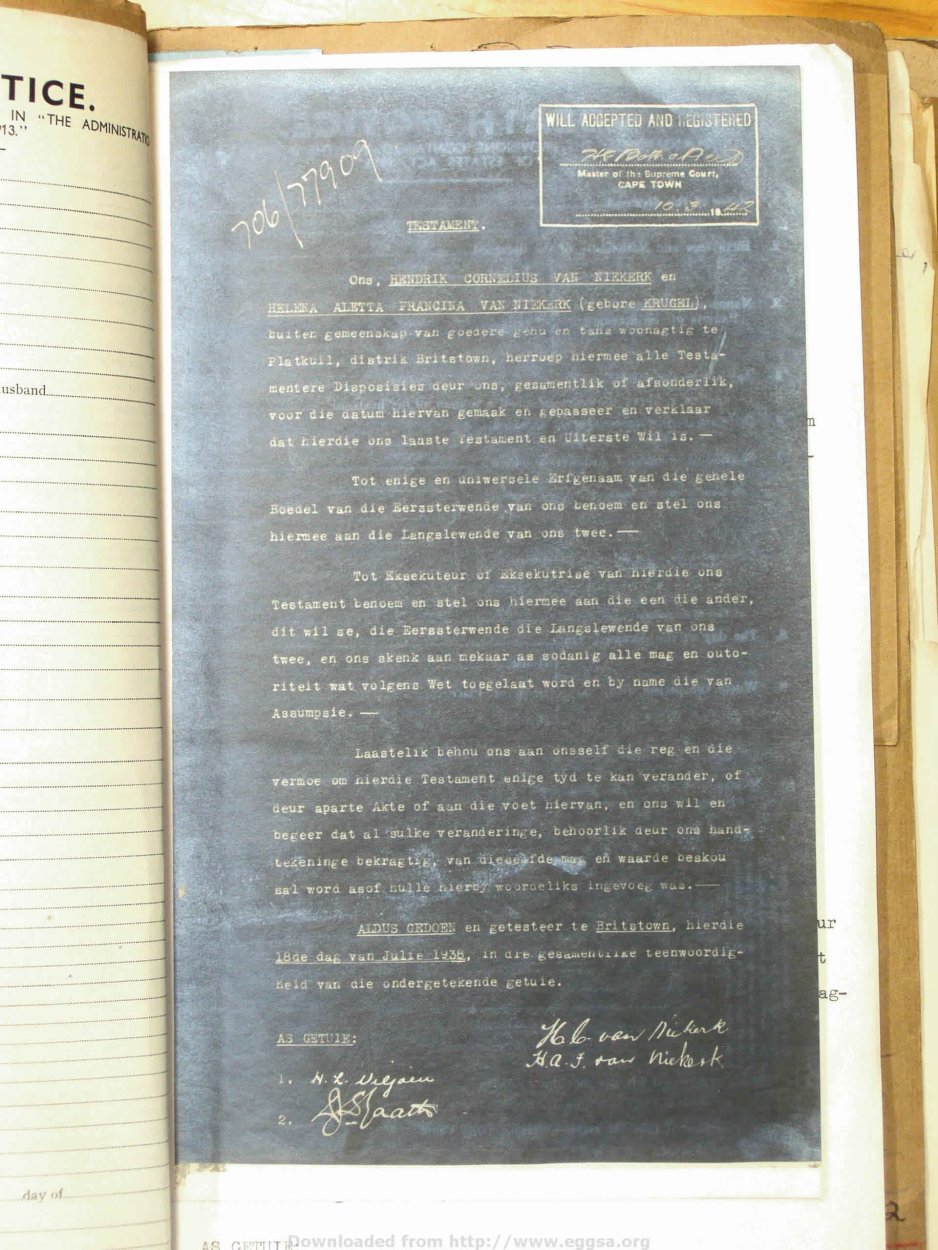 TICE.
IN "THE ADMINISTRATIO
13."
usband
day of
WILL ACCEPTED AND REGISTERED
Master of the Supreme Court,
CAPE TOWN
10.3.1942
706/77909
TESTAMENT.
Ons, HENDRIK CORNELIUS VAN NIEKERK en
HELENA ALETTA FRANCINA VAN NIEKERK (gebore KRUGEL),
buiten gemeenskap van goedere gehu en tans woonagtig te
Platkuil, distrik Britstown, herroep hiermee alle Testa-
mentere Disposisies deur ons, gesamentlik of afsonderlik,
voor die datum hiervan gemaak en gepasseer en verklaar
dat hierdie ons laaste Testament en Uiterste Wil is. —
Tot enige en uniwersele Erfgenaam van die gehele
Boedel van die Eerssterwende van ons benoem en stel ons
hiermee aan die Langslewende van ons twee. —
Tot Eksekuteur of Eksekutrise van hierdie ons
Testament benoem en stel ons hiermee aan die een die ander,
dit wil se, die Eerssterwende die Langslewende van ons
twee, en ons skenk aan mekaar as sodanig alle mag en outo-
riteit wat volgens Wet toegelaat word en by name die van
Assumpsie. —
Laastelik behou ons aan onsself die reg en die
vermoe om hierdie Testament enige tyd te kan verander, of
deur aparte Akte of aan die voet hiervan, en ons wil en
begeer dat al sulke veranderinge, behoorlik deur ons hand-
tekeninge bekragtig, van dieselfde mag en waarde beskou
sal word asof hulle hierby woordeliks ingevoeg was. —
ALDUS GEDOEN en getesteer te Britstown, hierdie
18de dag van Julie 1938, in die gesamentlike teenwoordig-
heid van die ondergetekende getuie.
AS GETUIE:
H C van Niekerk
H.A.F. van Niekerk
1. N. L. Viljoen
2.
n
ur
t
ag-
2
AS GETUIE:
Downloaded from http://www.eggsa.org